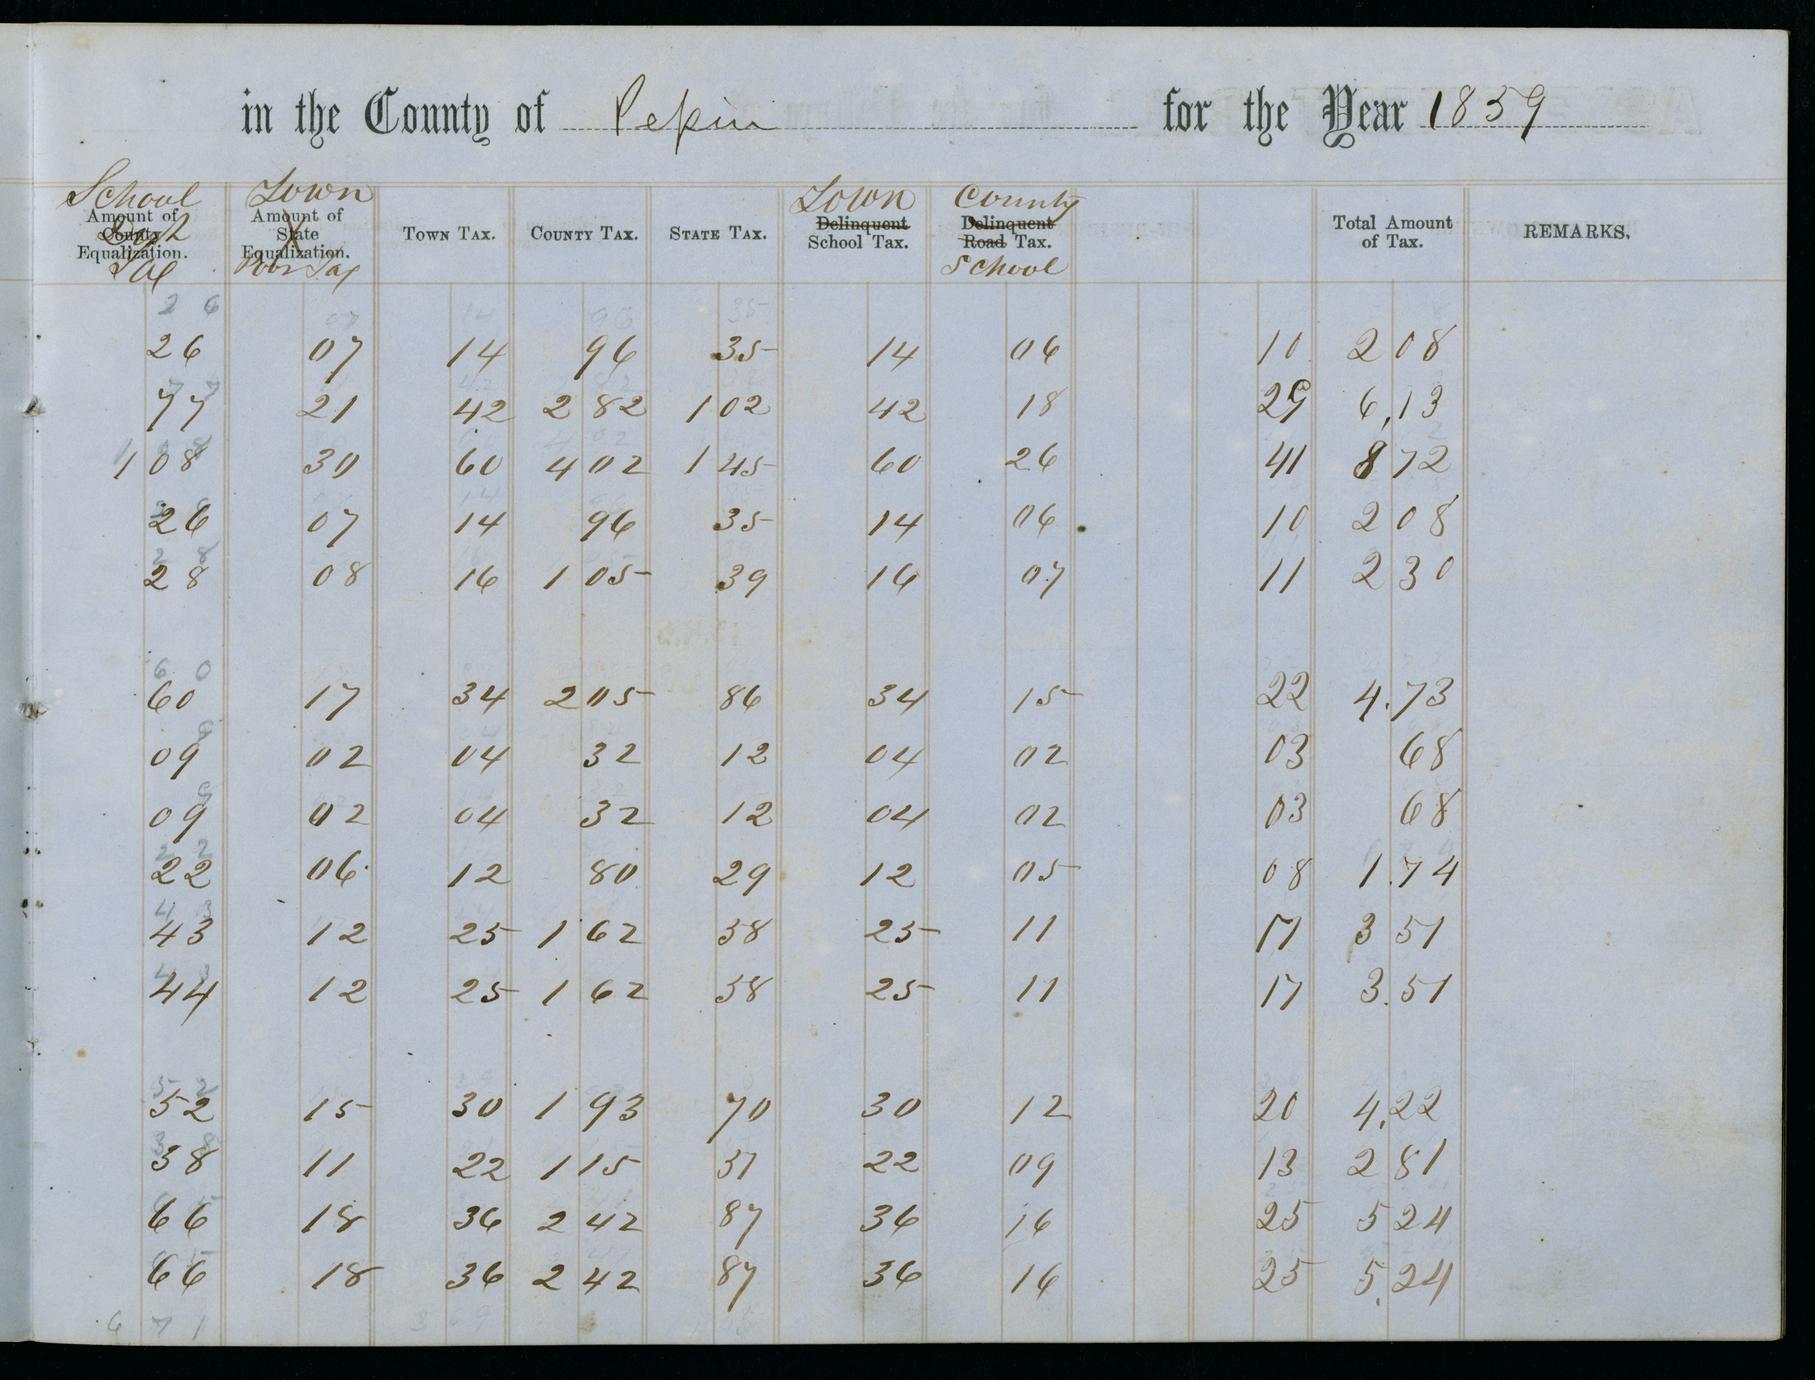 in the County of Pepin for the Year 1859
School Town Town County
Amount of County Equalization. Amount of State Equalization. TOWN TAX. COUNTY TAX. STATE TAX. Delinquent School Tax. Delinquent Road Tax. Total Amount of Tax. REMARKS.
Tax Poor Tax School
2 6 07 14 96 35
26 07 14 96 35 14 06 10 2 08
77 21 42 2 82 1 02 42 18 29 6,13
1 08 30 60 4 02 1 45 60 26 41 8 72
26 07 14 96 35 14 06 10 2 08
28 08 16 1 05 39 16 07 11 2 30
6 0
60 17 34 2 05 86 34 15 22 4.73
09 02 04 32 12 04 02 03 68
09 02 04 32 12 04 02 03 68
22 06 12 80 29 12 05 08 1.74
43 12 25 1 62 58 25 11 17 3 51
44 12 25 1 62 58 25 11 17 3.51
5 2
52 15 30 1 93 70 30 12 20 4,22
38 11 22 1 15 51 22 09 13 2 81
66 18 36 2 42 87 36 16 25 5 24
66 18 36 2 42 87 36 16 25 5,24
6 7 1